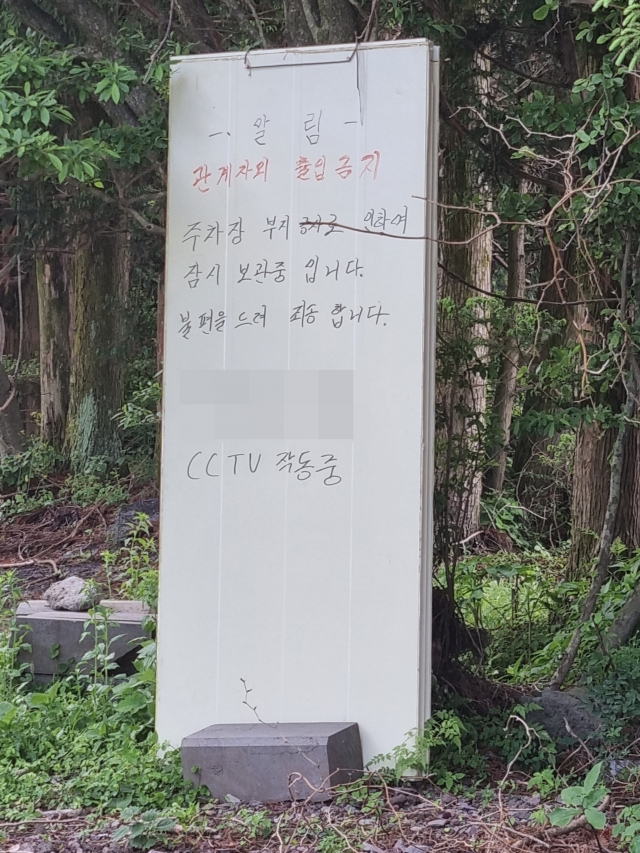 -. 알 림 -
관계자외 출입금지
주차장 부지 공사로 인하여
잠시 보관중 입니다.
불편을 드려 죄송 합니다.
CCTV 작동중